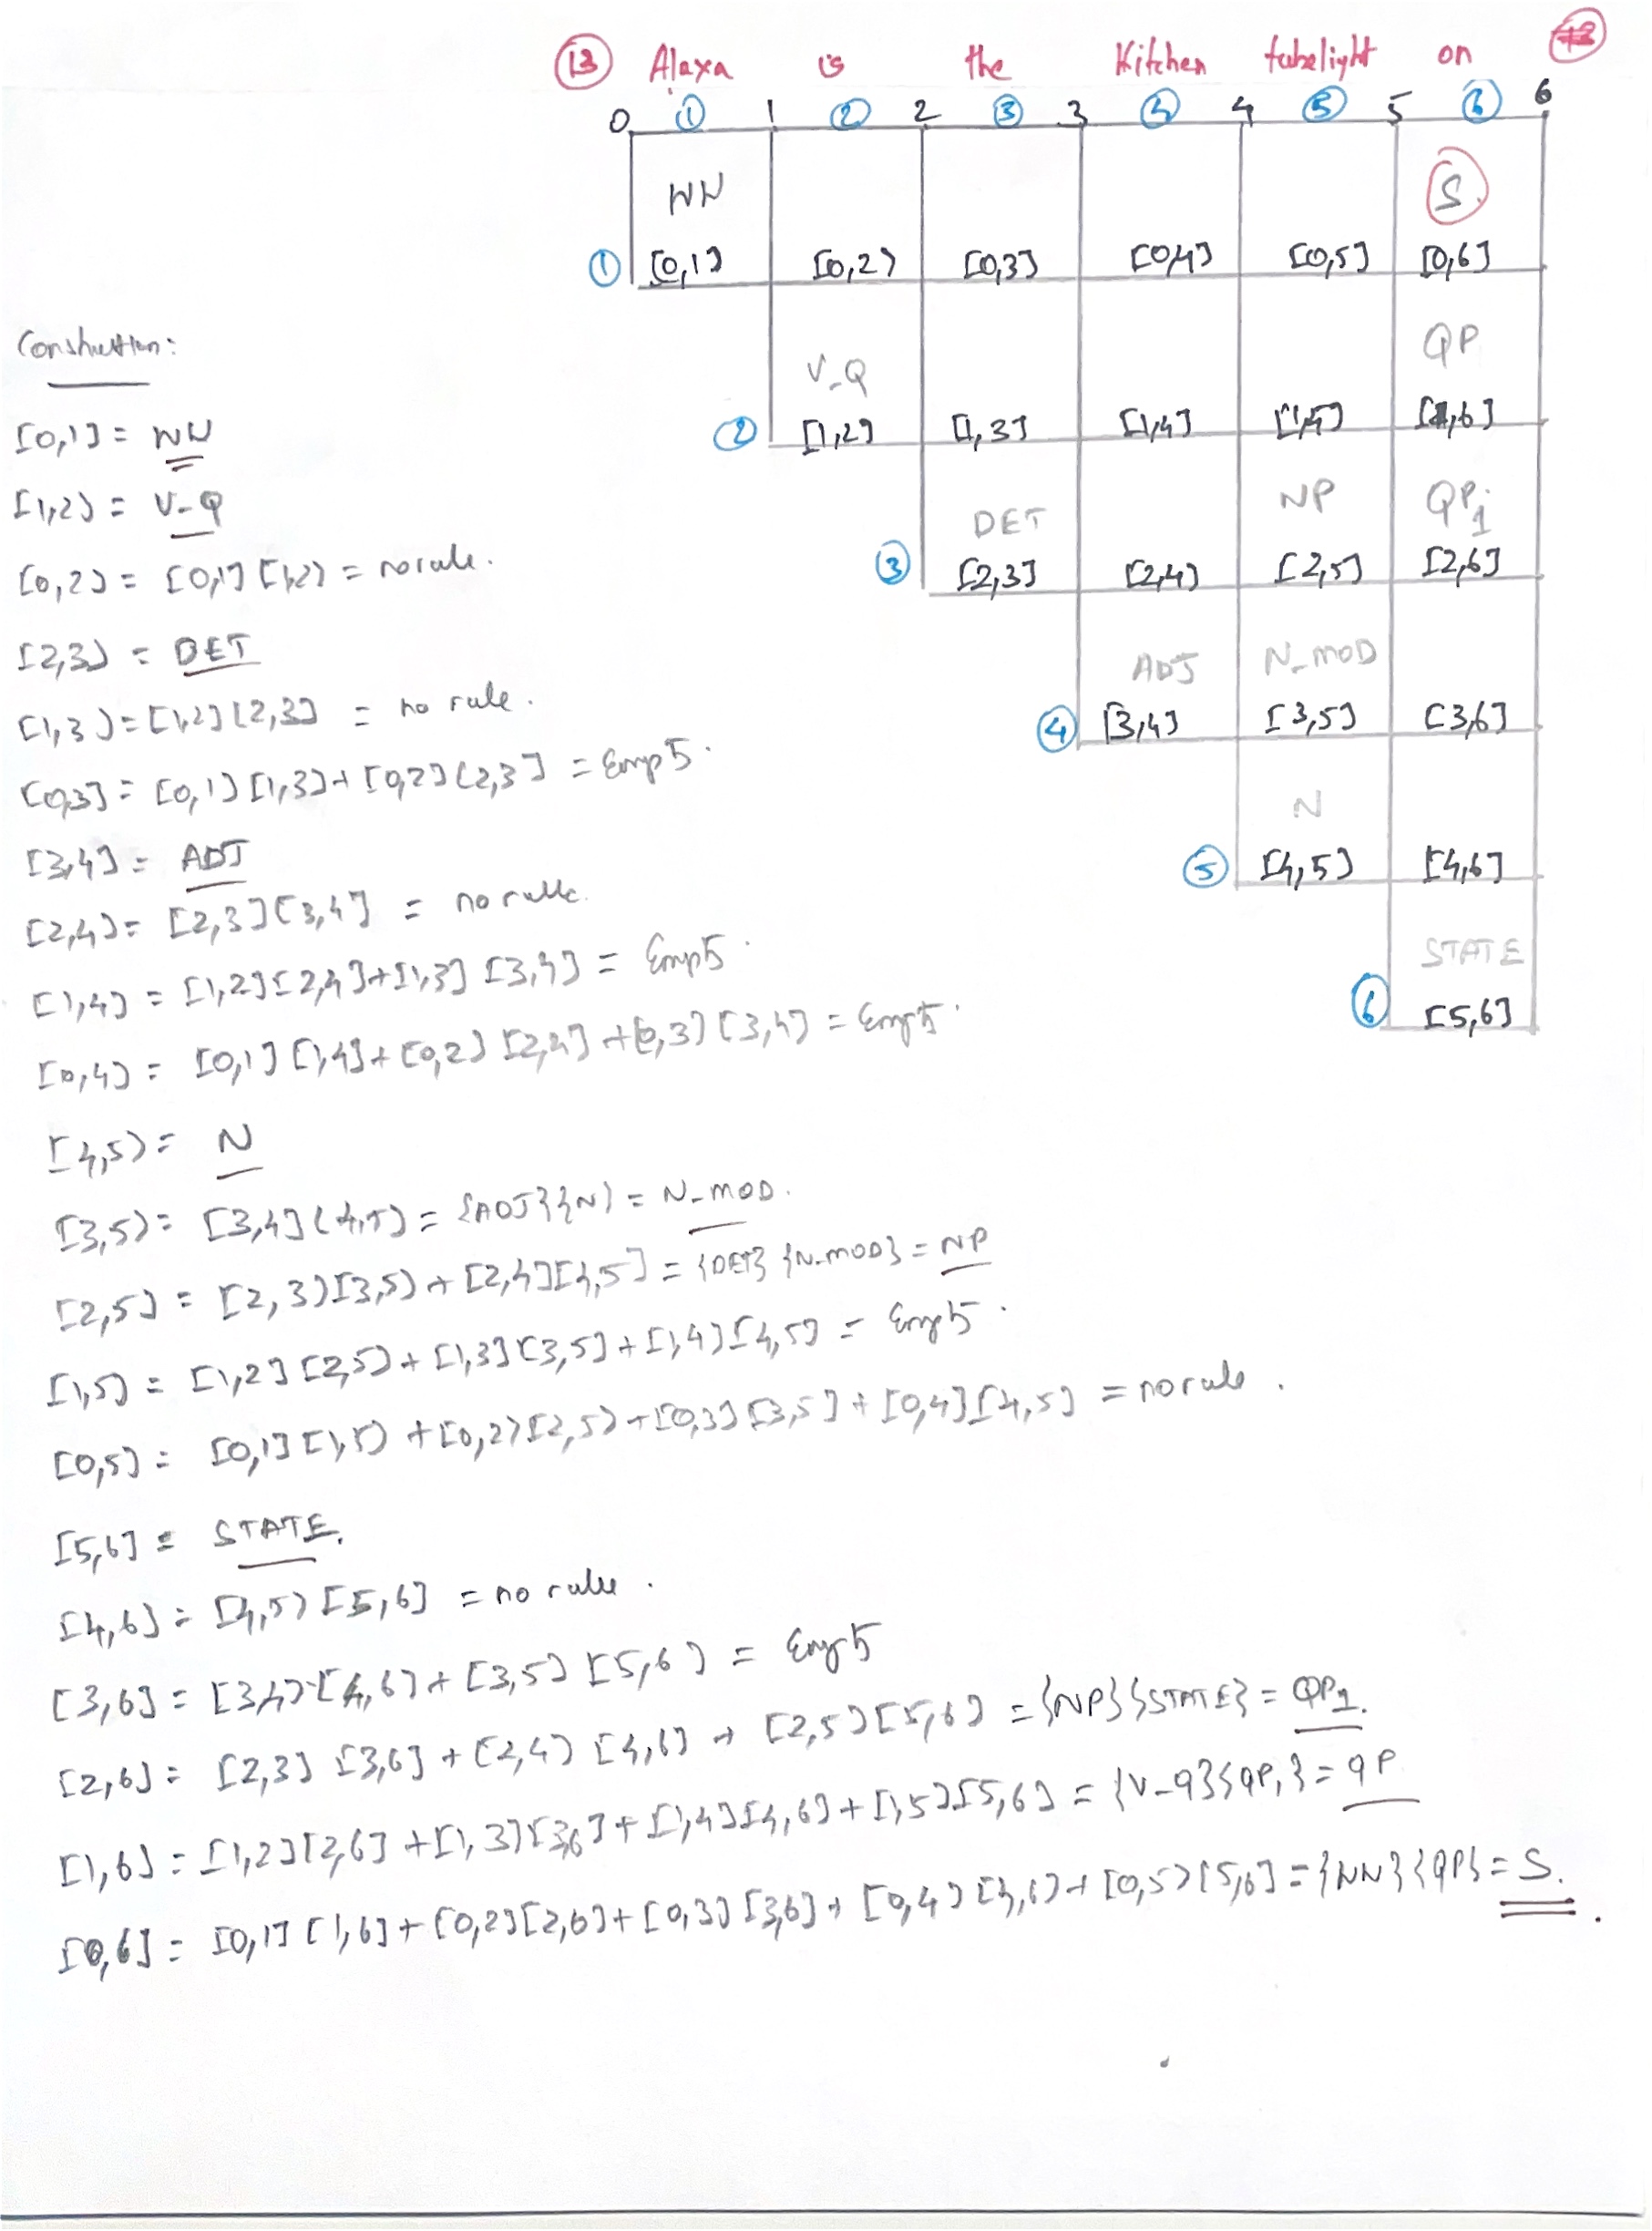 13 Alaxa is the Kitchen tubelight on
0 1 1 2 2 3 3 4 4 5 5 6 6
WW S
1 [0,1] [0,2) [0,3] [0,4] [0,5] [0,6]
V_Q QP
2 [1,2] [1,3] [1,4] [1,5] [1,6]
DET NP QP1
3 [2,3] [2,4] [2,5] [2,6]
ADJ N_MOD
4 [3,4] [3,5] [3,6]
N
5 [4,5] [4,6]
STATE
6 [5,6]
Construction:
[0,1] = WW
[1,2) = V-Q
[0,2) = [0,1] [1,2) = no rule.
[2,3) = DET
[1,3) = [1,2] [2,3] = no rule.
[0,3] = [0,1) [1,3) + [0,2] (2,3] = Empty.
[3,4] = ADJ
[2,4) = [2,3] [3,4] = no rule.
[1,4] = [1,2] [2,4] + [1,3] [3,4] = Empty.
[0,4) = [0,1] [1,4] + [0,2) [2,4] + [0,3) [3,4] = Empty.
[4,5) = N
[3,5) = [3,4] (4,5) = {ADJ}{N} = N_MOD.
[2,5] = [2,3) [3,5) + [2,4] [4,5] = {DET} {N_MOD} = NP
[1,5) = [1,2] [2,5) + [1,3] [3,5] + [1,4) [4,5] = Empty.
[0,5) = [0,1] [1,5) + [0,2) [2,5) + [0,3] [3,5] + [0,4] [4,5] = no rule.
[5,6] = STATE.
[4,6) = [4,5) [5,6] = no rule.
[3,6] = [3,4) [4,6) + [3,5) [5,6) = Empty
[2,6] = [2,3] [3,6] + [2,4) [4,6] + [2,5) [5,6] = {NP}{STATE} = QP1.
[1,6] = [1,2] [2,6] + [1,3) [3,6] + [1,4] [4,6] + [1,5] [5,6] = {V_Q}{QP1} = QP
[0,6] = [0,1] [1,6] + [0,2] [2,6] + [0,3] [3,6] + [0,4] [4,6) + [0,5) [5,6] = {WW}{QP} = S.